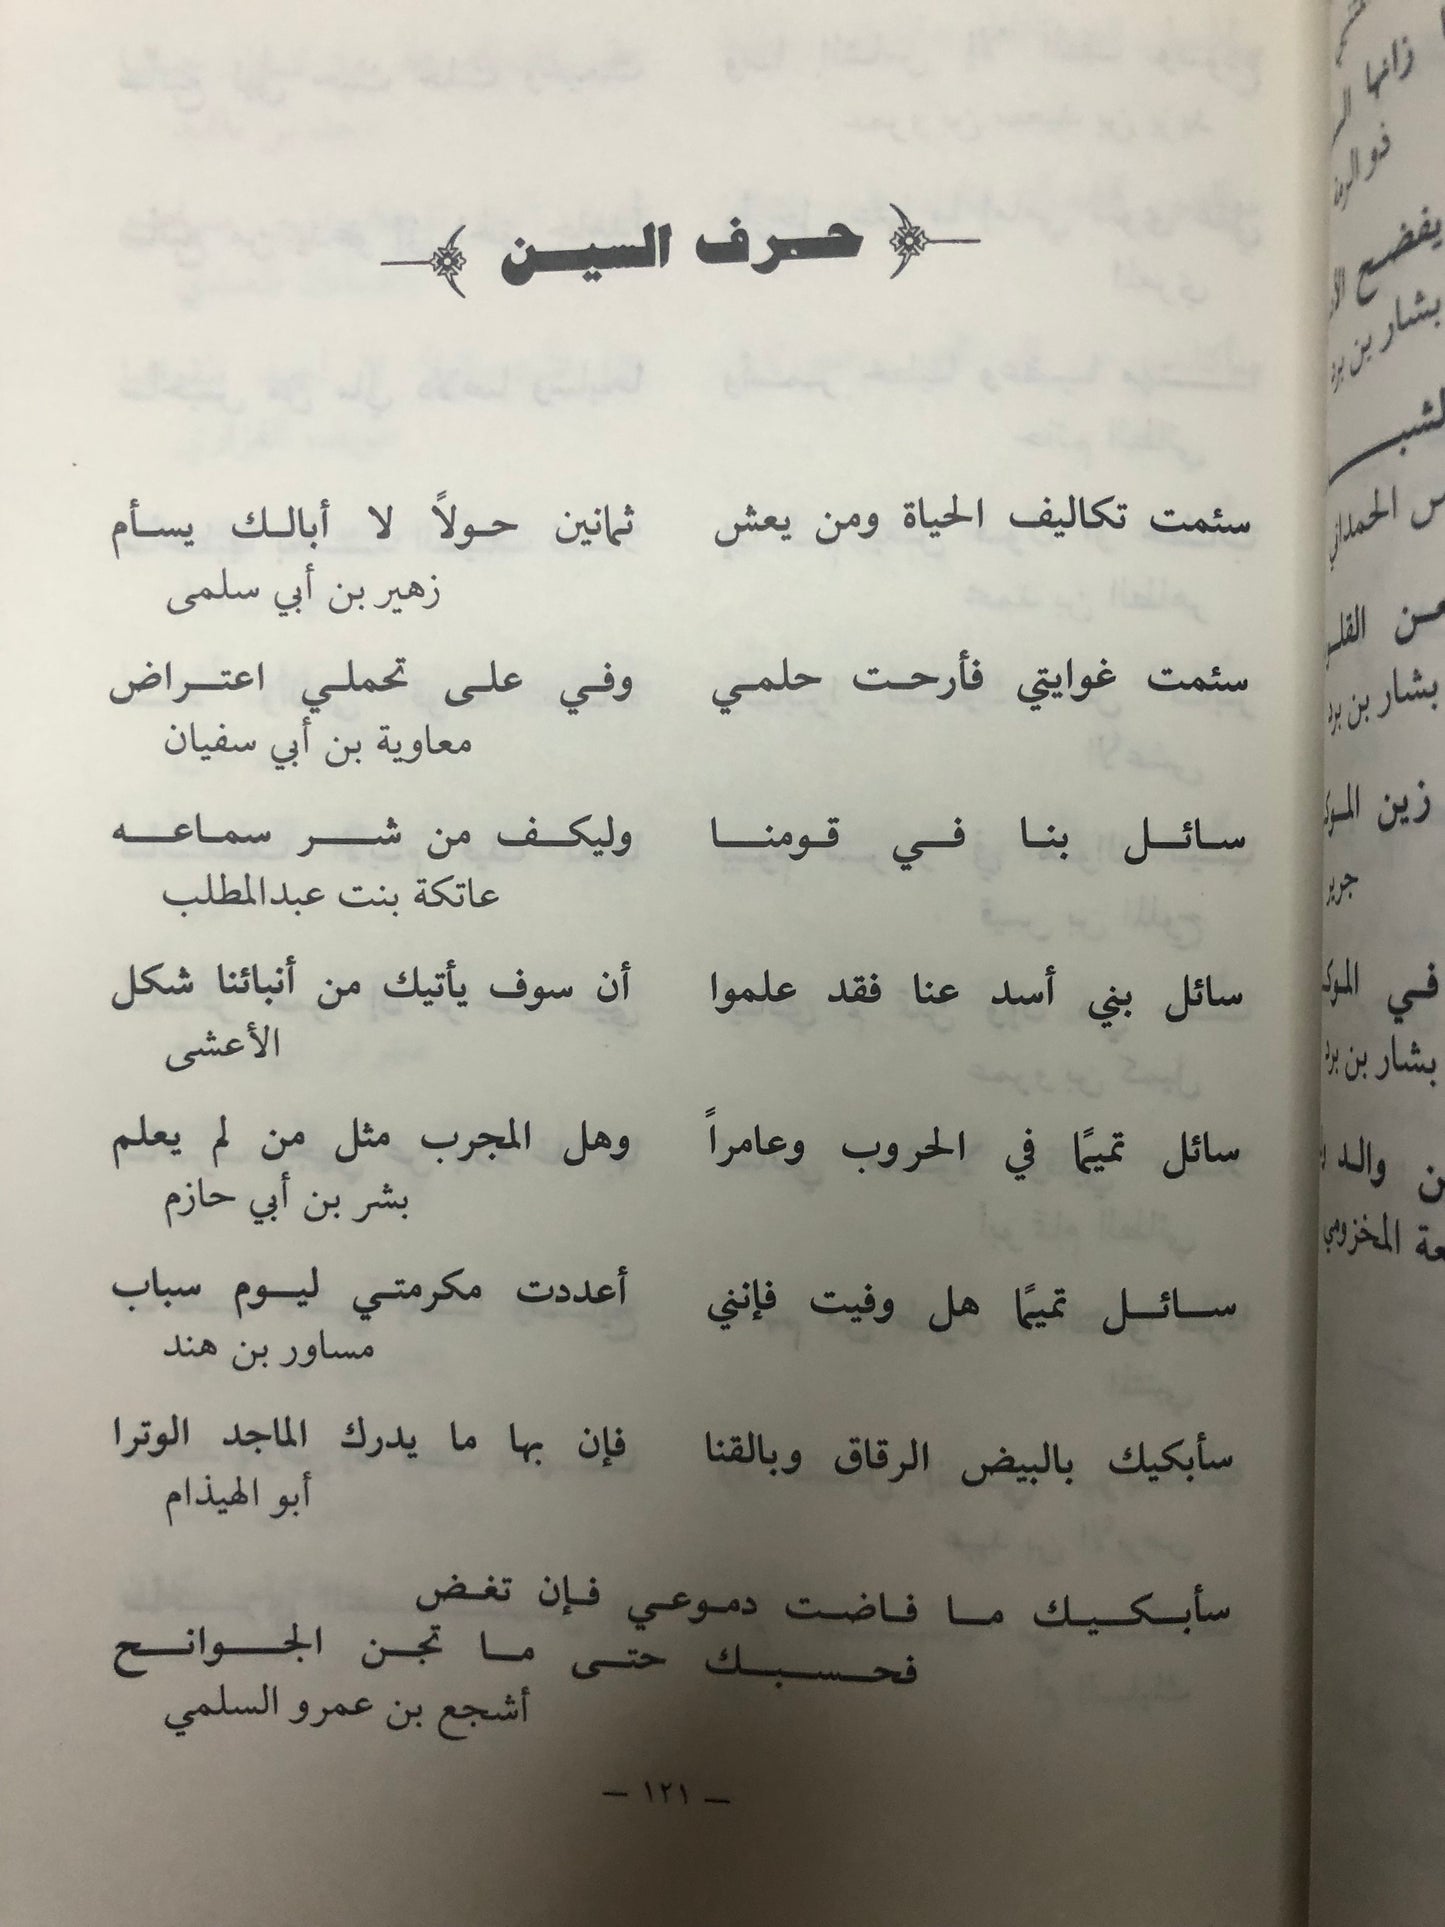 حرف السين
سئمت تكاليف الحياة ومن يعش ثمانين حولاً لا أبالك يسأم
زهير بن أبي سلمى
سئمت غوايتي فأرحت حلمي وفي على تحملي اعتراض
معاوية بن أبي سفيان
سائل بنا في قومنا وليكف من شر سماعه
عاتكة بنت عبدالمطلب
سائل بني أسد عنا فقد علموا أن سوف يأتيك من أنبائنا شكل
الأعشى
سائل تميمًا في الحروب وعامراً وهل المجرب مثل من لم يعلم
بشر بن أبي حازم
سائل تميمًا هل وفيت فإنني أعددت مكرمتي ليوم سباب
مساور بن هند
سأبكيك بالبيض الرقاق وبالقنا فإن بها ما يدرك الماجد الوترا
أبو الهيذام
سأبكيك ما فاضت دموعي فإن تغض
فحسبك حتى ما تجن الجوانح
أشجع بن عمرو السلمي
— ١٢١ —
زانها
ذو الرمة
يفضح
بشار بن برد
الحمداني
عن
بشار بن برد
زين
جرير
في
بشار بن برد
والد
المخزومي